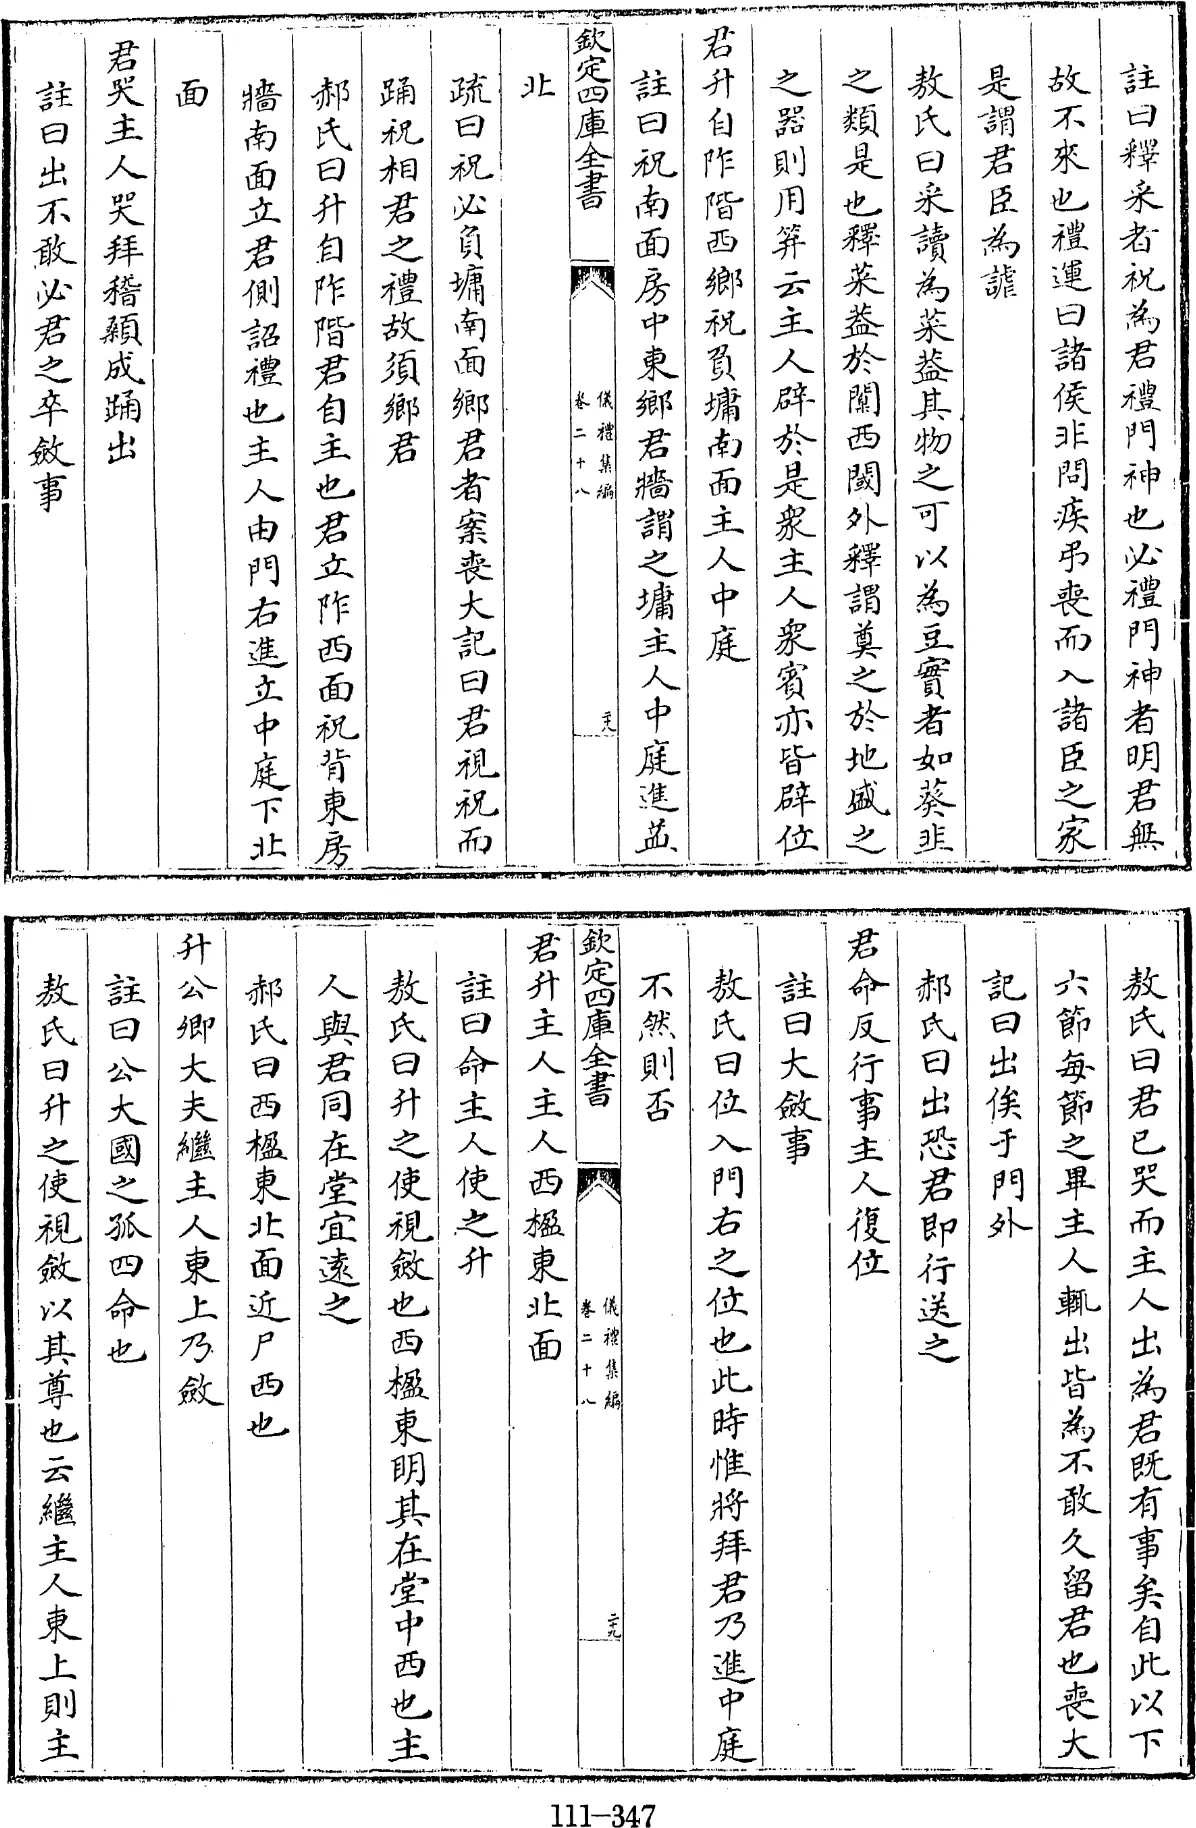 註曰釋采者祝為君禮門神也必禮門神者明君無
故不來也禮運曰諸侯非問疾弔喪而入諸臣之家
是謂君臣為謔
敖氏曰采讀為菜葢其物之可以為豆實者如葵韭
之類是也釋菜葢於闑西閾外釋謂奠之於地盛之
之器則用筭云主人辟於是衆主人衆賓亦皆辟位
君升自阼階西鄉祝負墉南面主人中庭
註曰祝南面房中東鄉君牆謂之墉主人中庭進益
欽定四庫全書
儀禮集編
卷二十八
二十八
北
疏曰祝必負墉南面鄉君者案喪大記曰君視祝而
踊祝相君之禮故須鄉君
郝氏曰升自阼階君自主也君立阼西面祝背東房
牆南面立君側詔禮也主人由門右進立中庭下北
面
君哭主人哭拜稽顙成踊出
註曰出不敢必君之卒斂事
敖氏曰君已哭而主人出為君既有事矣自此以下
六節每節之畢主人輒出皆為不敢久留君也喪大
記曰出俟于門外
郝氏曰出恐君即行送之
君命反行事主人復位
註曰大斂事
敖氏曰位入門右之位也此時惟將拜君乃進中庭
不然則否
欽定四庫全書
儀禮集編
卷二十八
二十九
君升主人主人西楹東北面
註曰命主人使之升
敖氏曰升之使視斂也西楹東明其在堂中西也主
人與君同在堂宜遠之
郝氏曰西楹東北面近尸西也
升公卿大夫繼主人東上乃斂
註曰公大國之孤四命也
敖氏曰升之使視斂以其尊也云繼主人東上則主
111-347